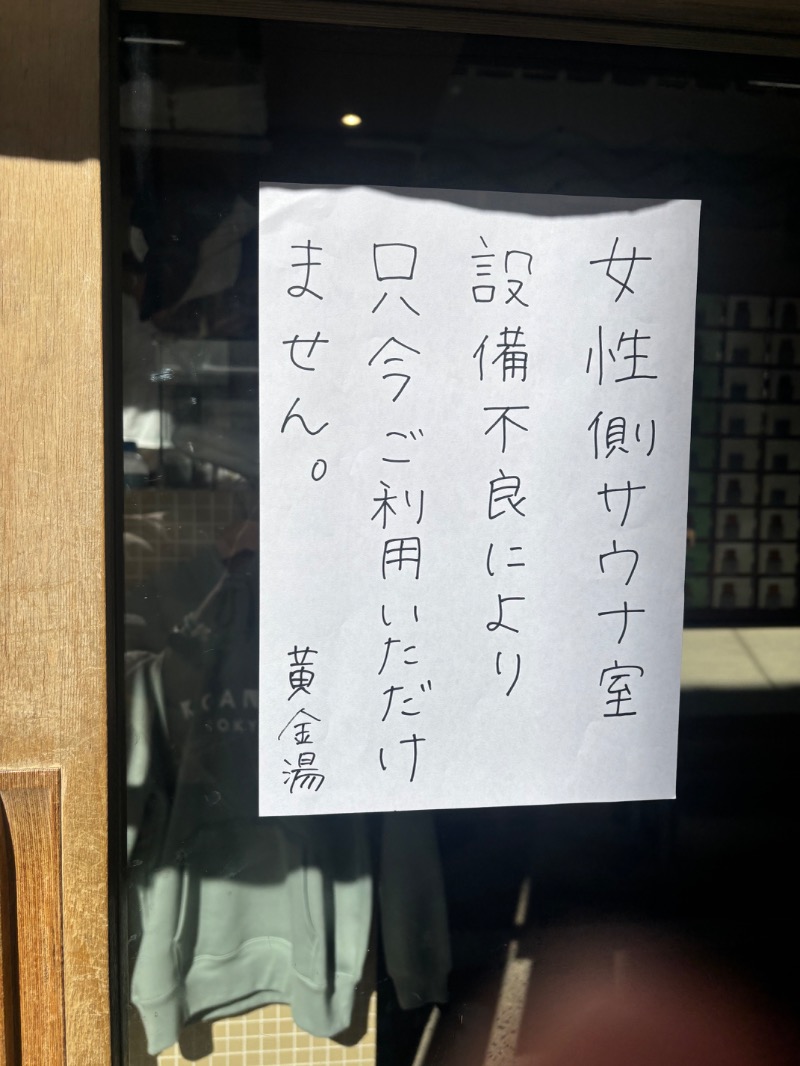 女性側サウナ室
設備不良により
只今ご利用いただけ
ません。
黄金湯